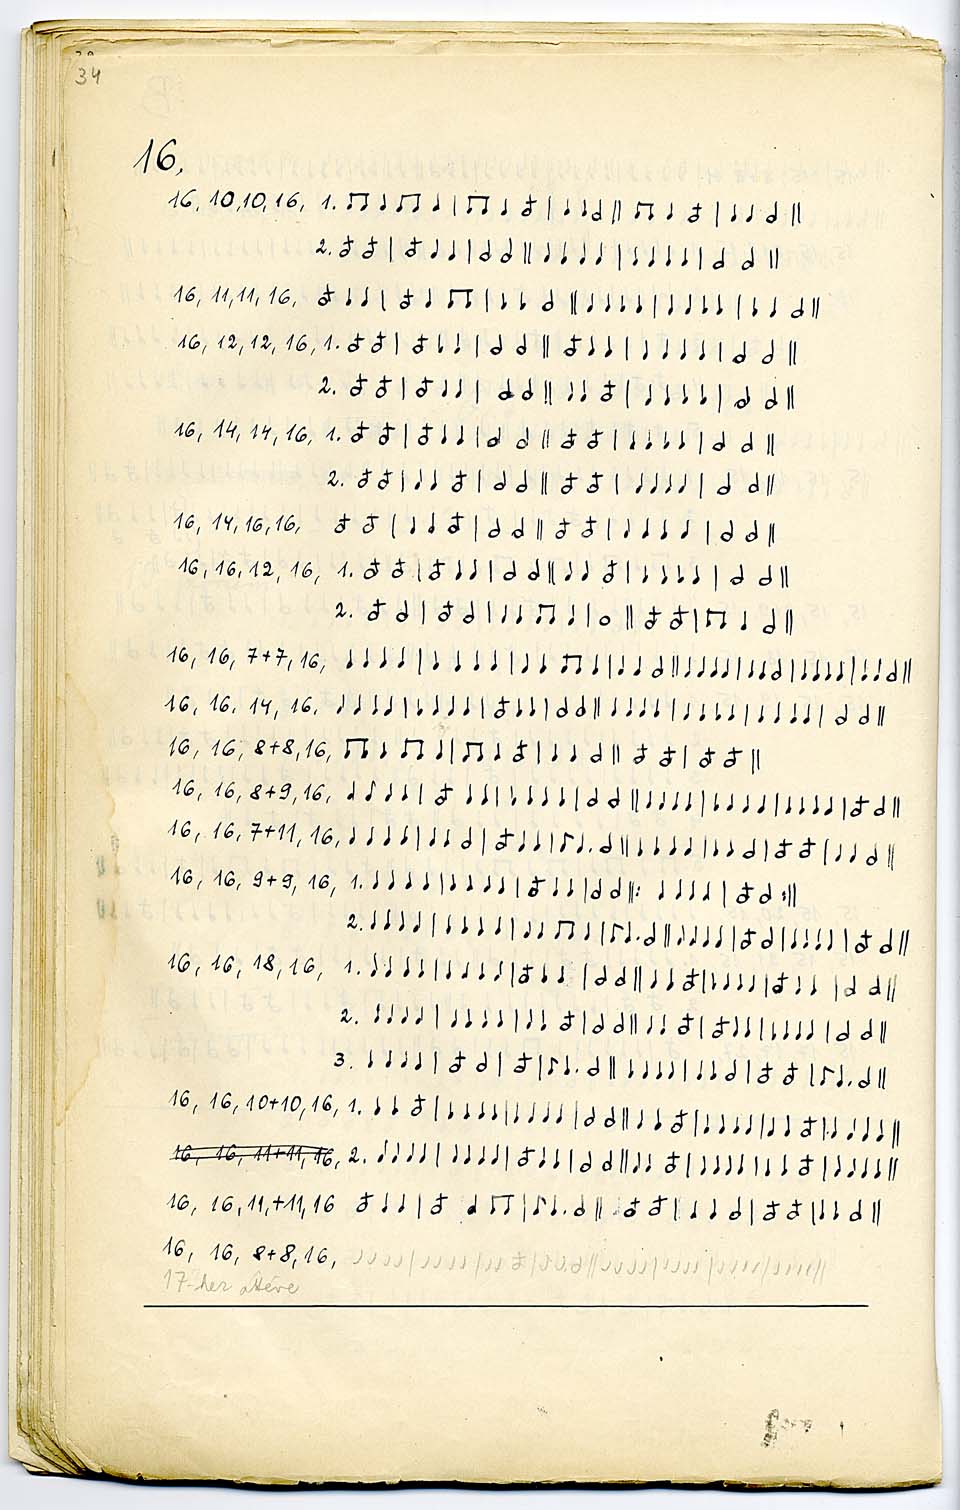 34
16,
16, 10,10, 16, 1.
2.
16, 11,11, 16,
16, 12, 12, 16, 1.
2.
16, 14, 14, 16, 1.
2.
16, 14, 16, 16,
16, 16, 12, 16, 1.
2.
16, 16, 7+7, 16,
16, 16, 14, 16.
16, 16, 8+8, 16,
16, 16, 8+9, 16,
16, 16, 7+11, 16,
16, 16, 9+9, 16, 1.
2.
16, 16, 18, 16, 1.
2.
3.
16, 16, 10+10, 16, 1.
16, 16, 11+11, 16, 2.
16, 16, 11,+11, 16
16, 16, 8+8, 16,
17-hez átéve